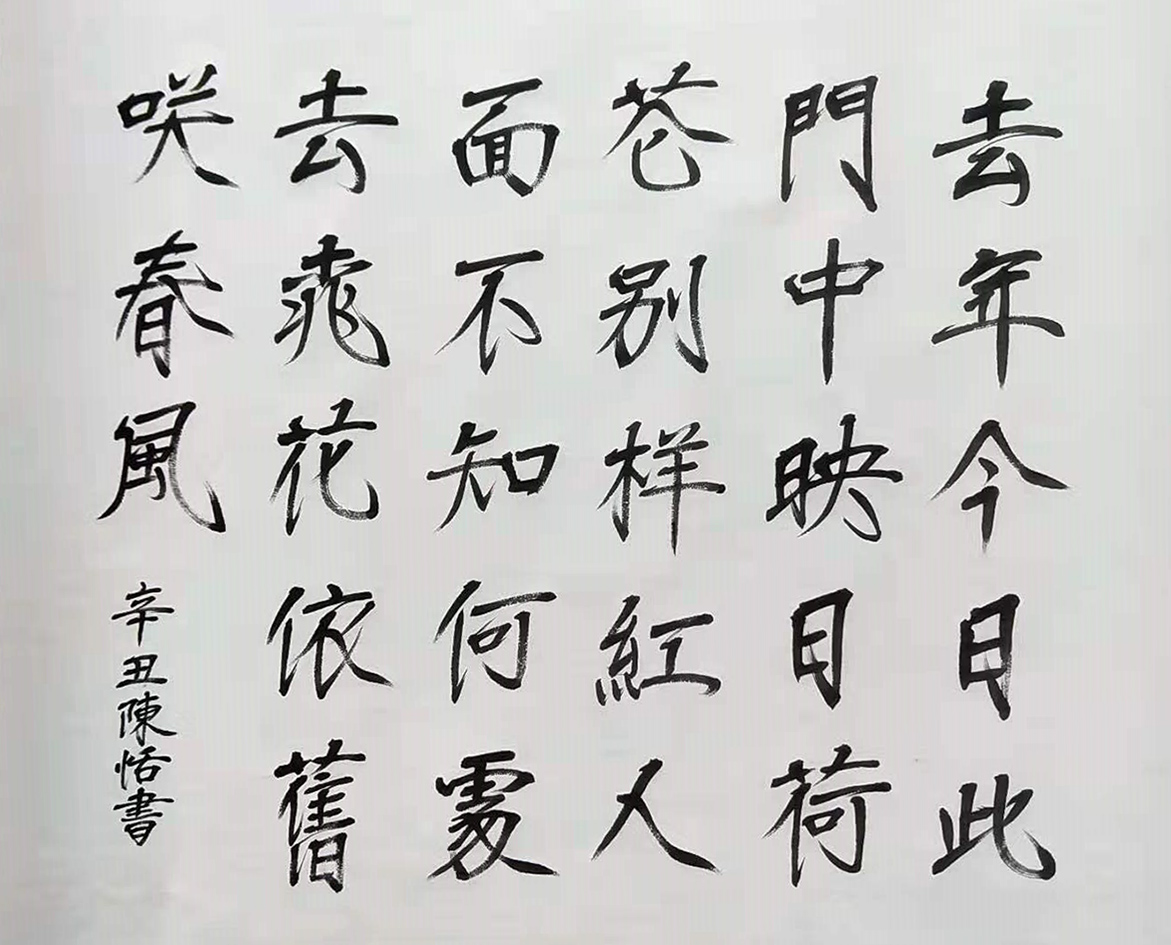 去年今日此
門中映目荷
苍别样紅人
面不知何處
去桃花依舊
咲春風
辛丑陳恬書